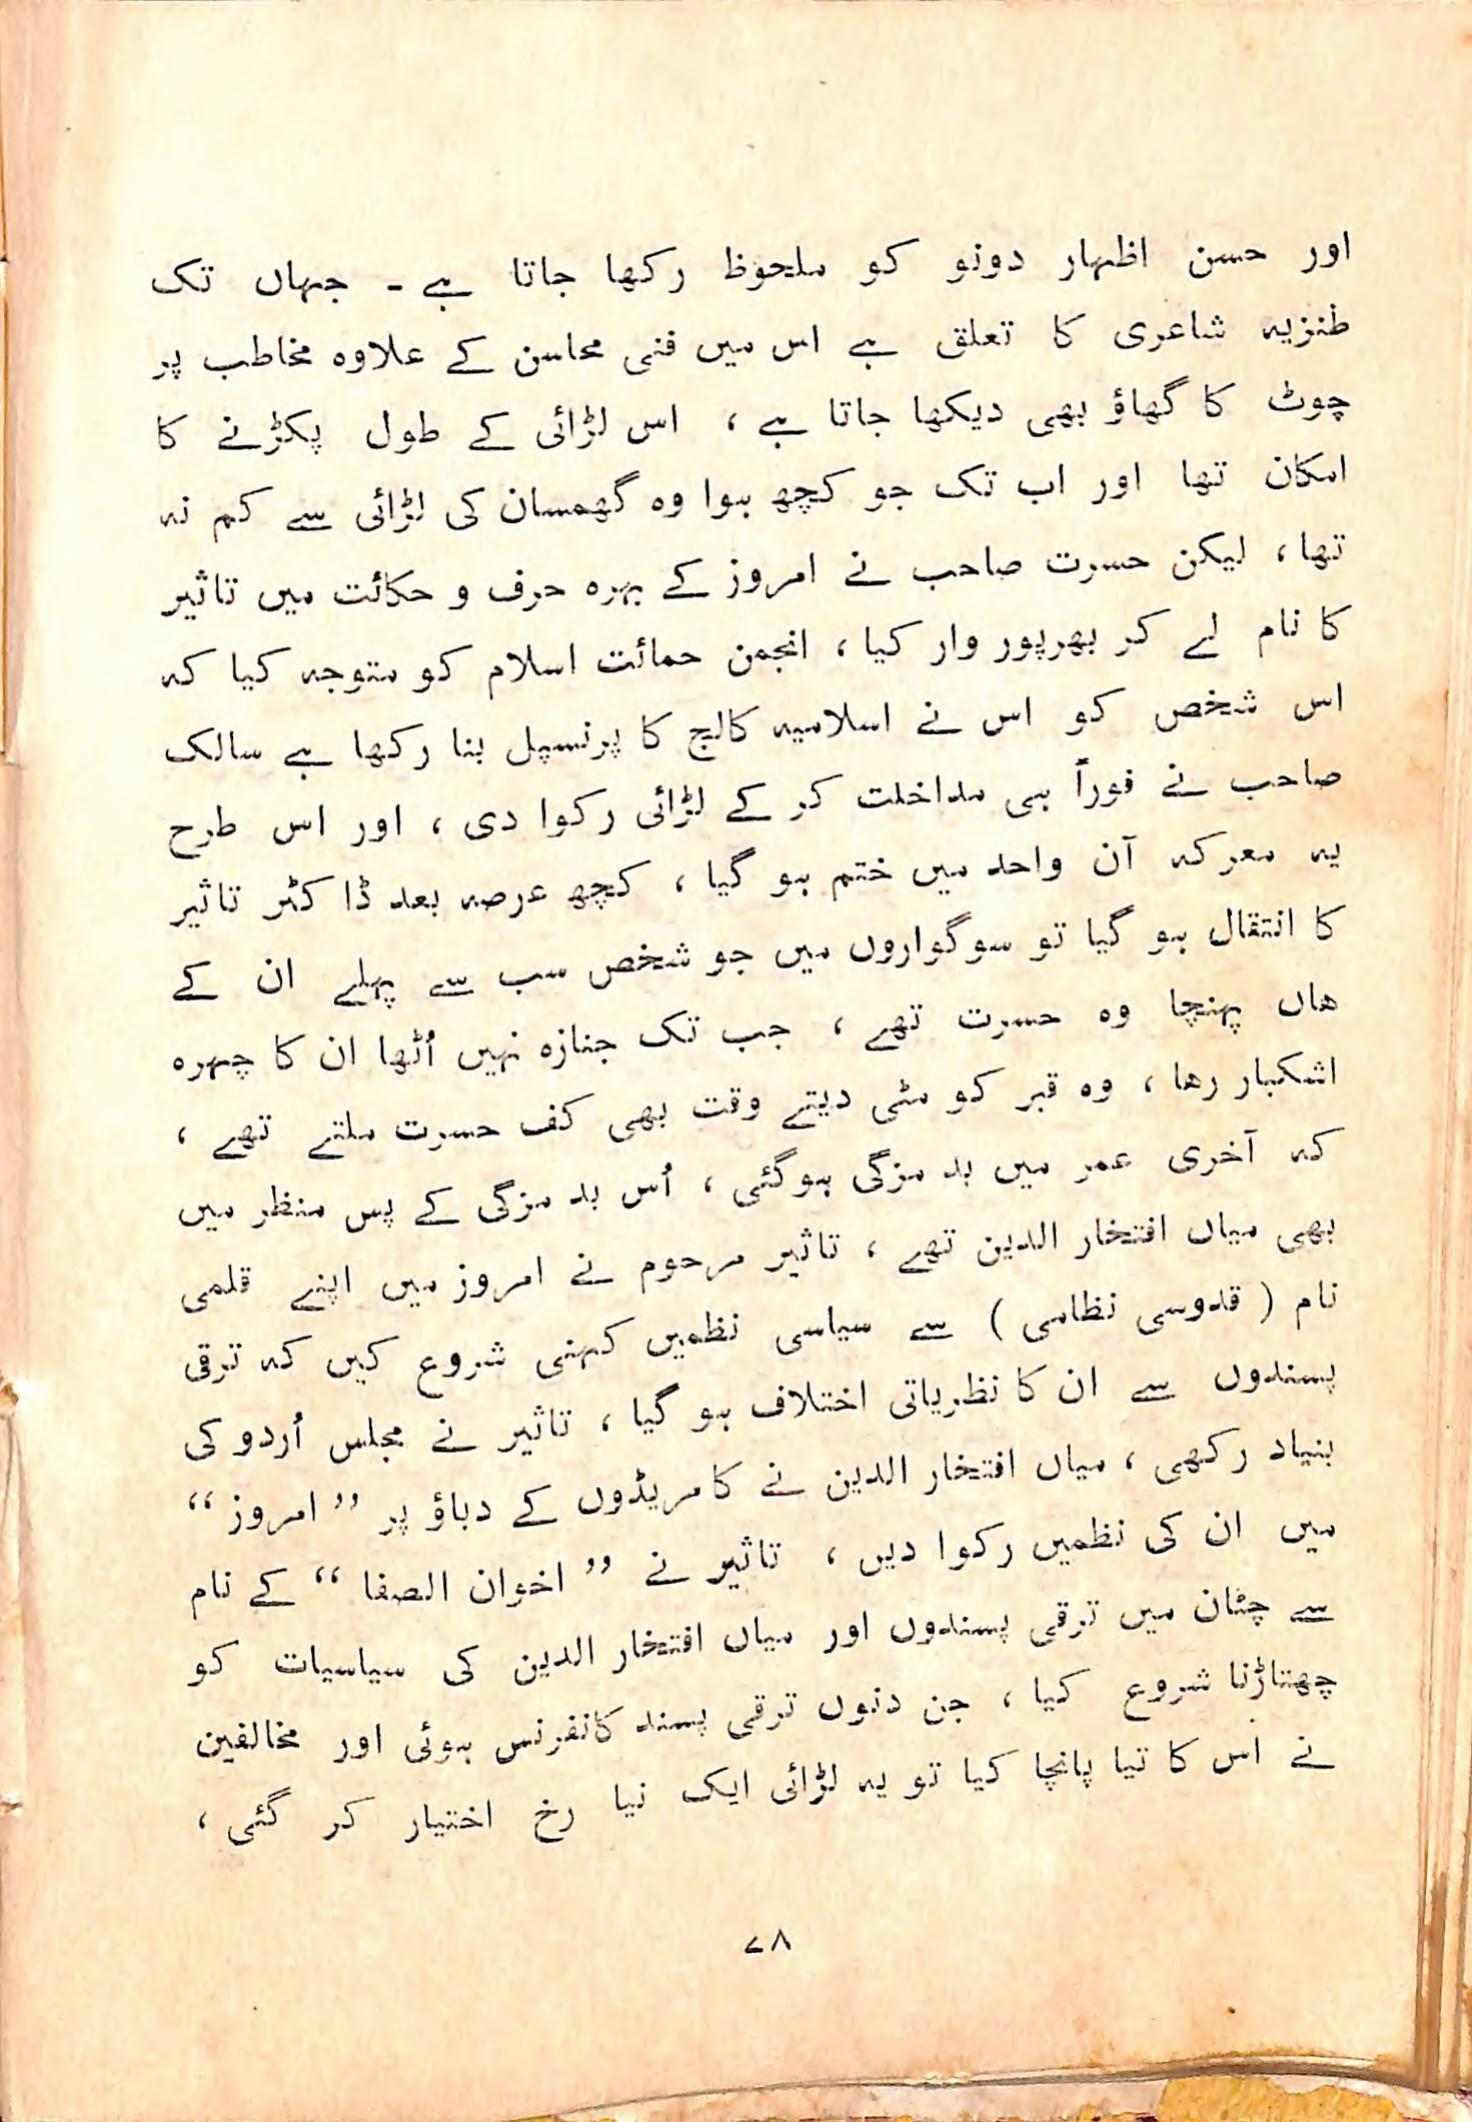 اور حسن اظہار دونو کو ملحوظ رکھا جاتا ہے ۔ جہاں تک
طنزیہ شاعری کا تعلق ہے اس میں فنی محاسن کے علاوہ مخاطب پر
چوٹ کا گھاؤ بھی دیکھا جاتا ہے ، اس لڑائی کے طول پکڑنے کا
امکان تھا اور اب تک جو کچھ ہوا وہ گھمسان کی لڑائی سے کم نہ
تھا ، لیکن حسرت صاحب نے امروز کے بہرہ حرف و حکائت میں تاثیر
کا نام لے کر بھرپور وار کیا ، انجمن حمائت اسلام کو متوجہ کیا کہ
اس شخص کو اس نے اسلامیہ کالج کا پرنسپل بنا رکھا ہے سالک
صاحب نے فوراً ہی مداخلت کر کے لڑائی رکوا دی ، اور اس طرح
یہ معرکہ آن واحد میں ختم ہو گیا ، کچھ عرصہ بعد ڈاکٹر تاثیر
کا انتقال ہو گیا تو سوگواروں میں جو شخص سب سے پہلے ان کے
ھاں پہنچا وہ حسرت تھے ، جب تک جنازہ نہیں اُٹھا ان کا چہرہ
اشکبار رھا ، وہ قبر کو مٹی دیتے وقت بھی کف حسرت ملتے تھے ،
کہ آخری عمر میں بد مزگی ہوگئی ، اُس بد مزگی کے پس منظر میں
بھی میاں افتخار الدین تھے ، تاثیر مرحوم نے امروز میں اپنے قلمی
نام ( قدوسی نظامی ) سے سیاسی نظمیں کہنی شروع کیں کہ ترقی
پسندوں سے ان کا نظریاتی اختلاف ہو گیا ، تاثیر نے مجلس اُردو کی
بنیاد رکھی ، میاں افتخار الدین نے کامریڈوں کے دباؤ پر ”امروز“
میں ان کی نظمیں رکوا دیں ، تاثیر نے ”اخوان الصفا“ کے نام
سے چٹان میں ترقی پسندوں اور میاں افتخار الدین کی سیاسیات کو
چھتاڑنا شروع کیا ، جن دنوں ترقی پسند کانفرنس ہوئی اور مخالفین
نے اُس کا تیا پانچا کیا تو یہ لڑائی ایک نیا رخ اختیار کر گئی ،
۷۸